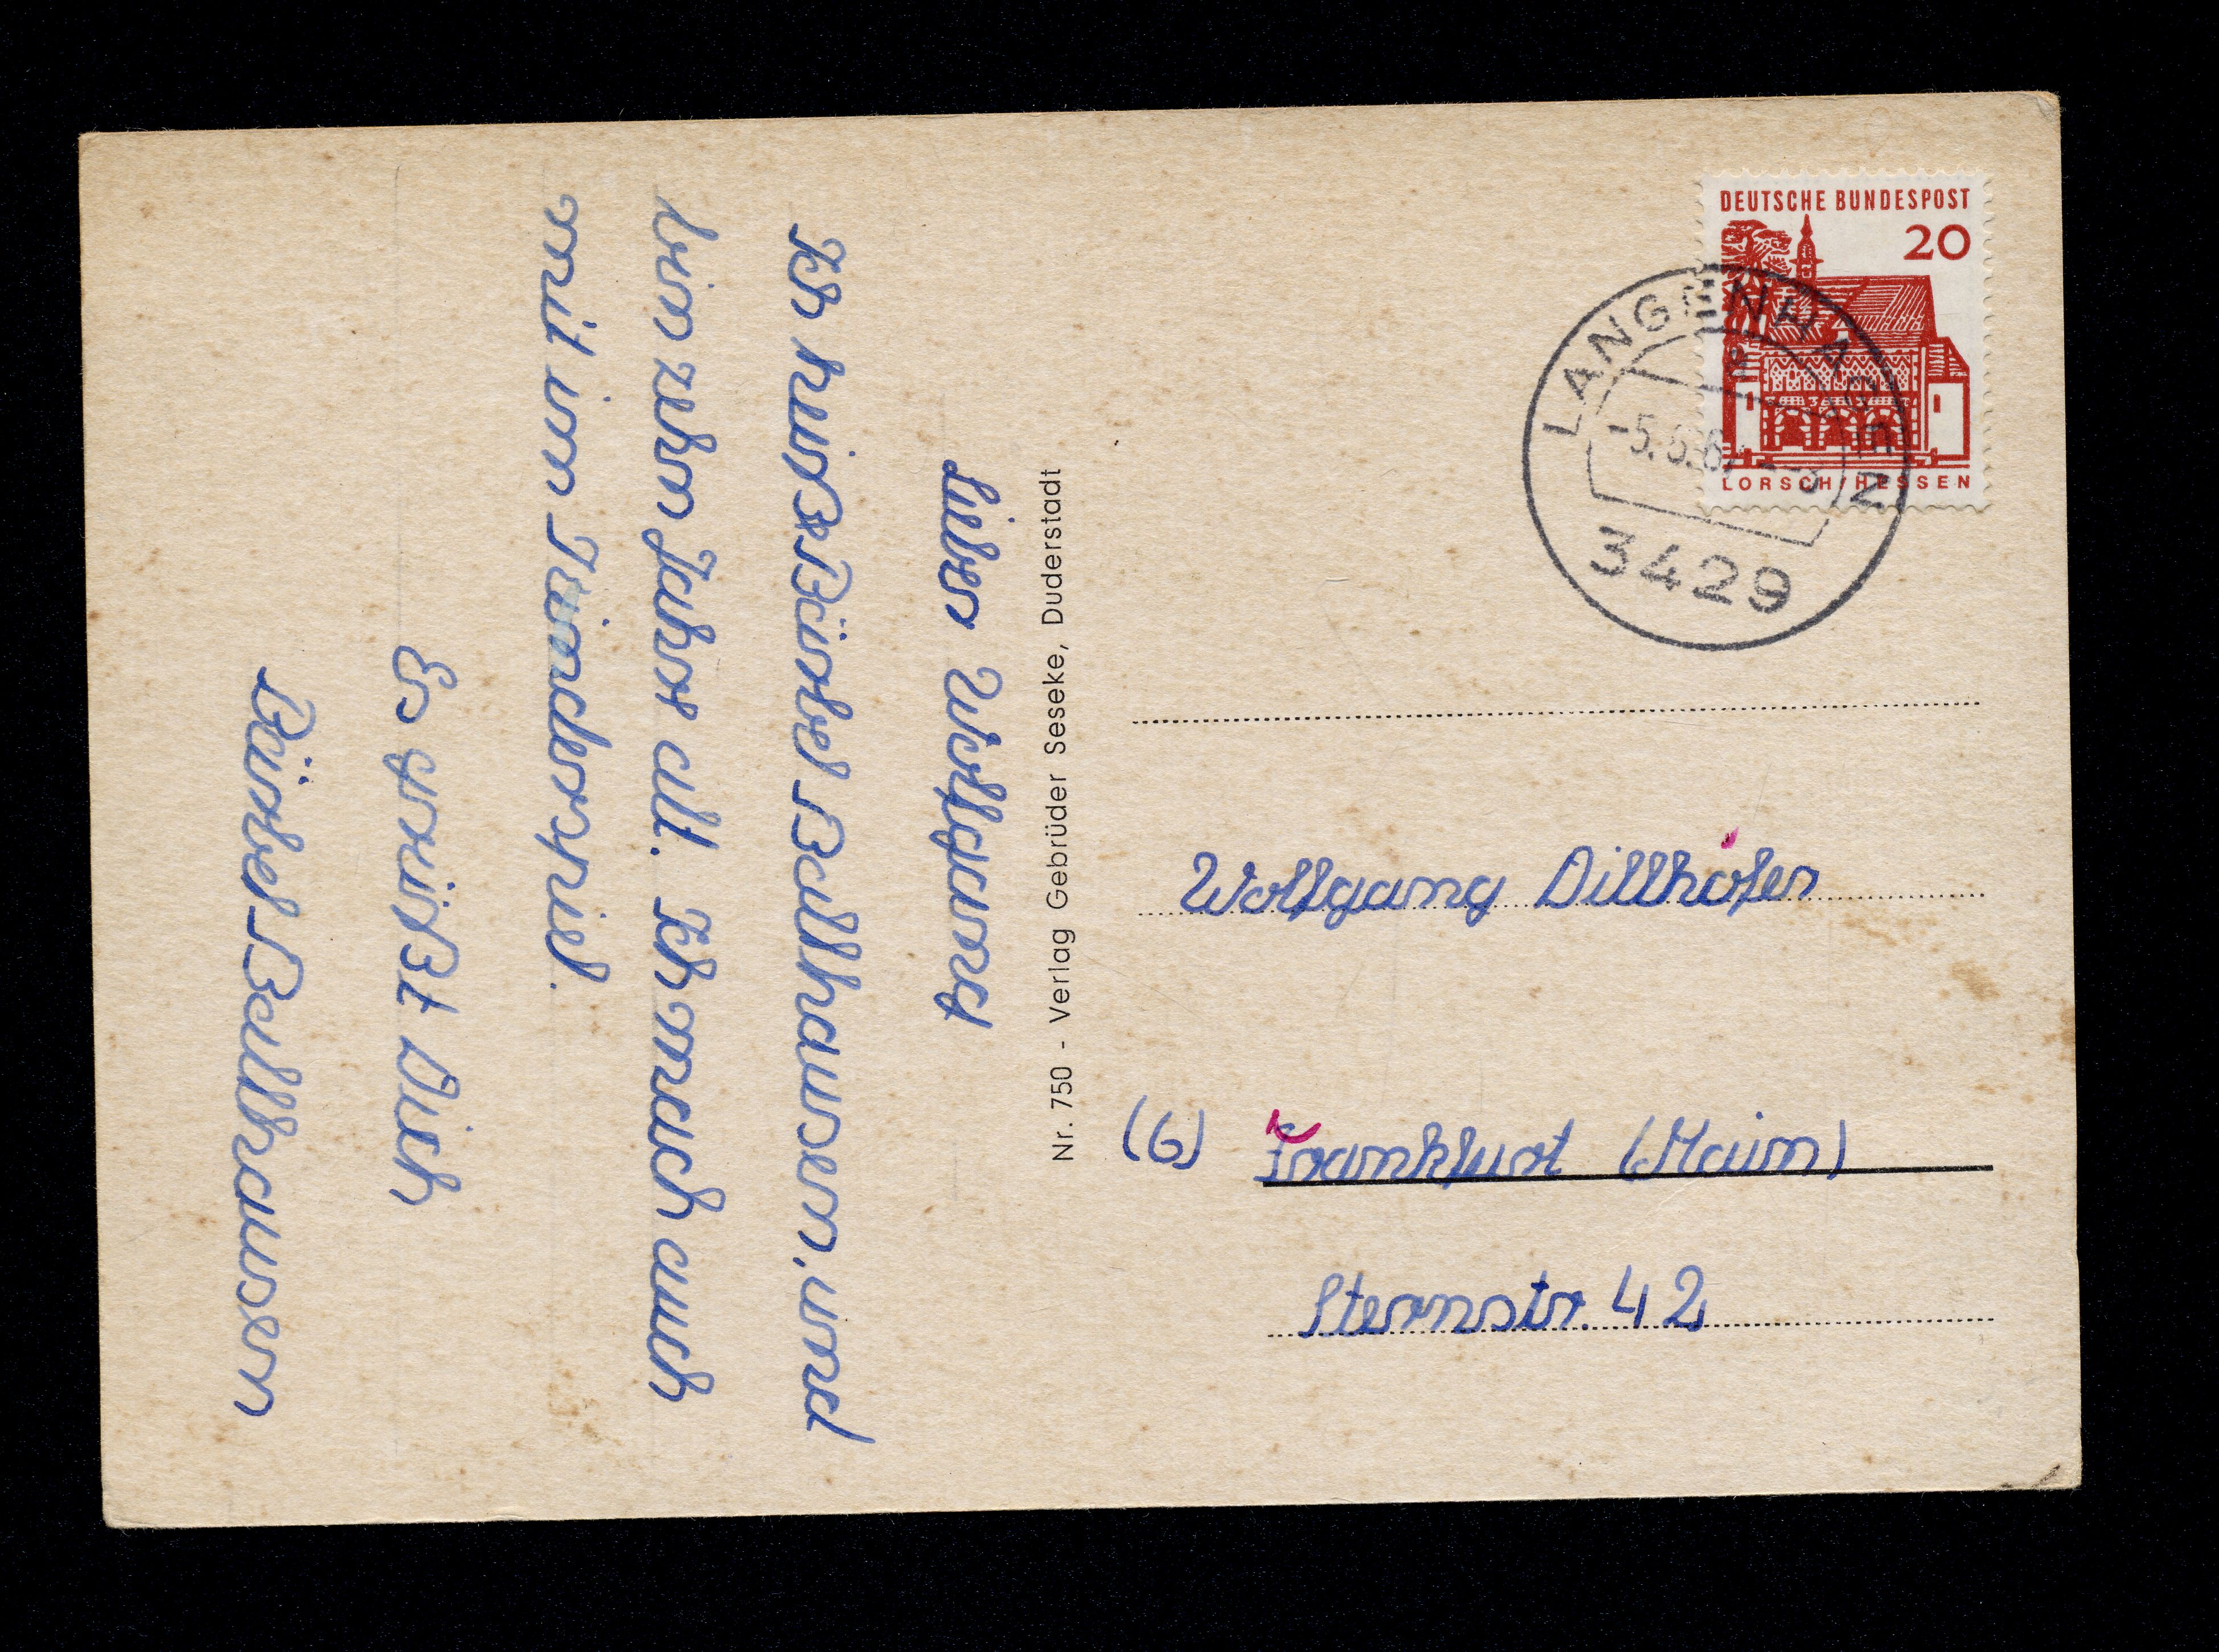 Lieber Wolfgang
Ich heiße Bärbel Ballhausen, und
bin zehn Jahre alt. Ich mach auch
mit im Länderspiel.
Es grüßt Dich
Bärbel Ballhausen
Nr. 750 - Verlag Gebrüder Seseke, Duderstadt
DEUTSCHE BUNDESPOST
20
LORSCH/HESSEN
LANGENHAGEN
3429
Wolfgang Dillhöfer
(6) Frankfurt (Main)
Sternstr. 42